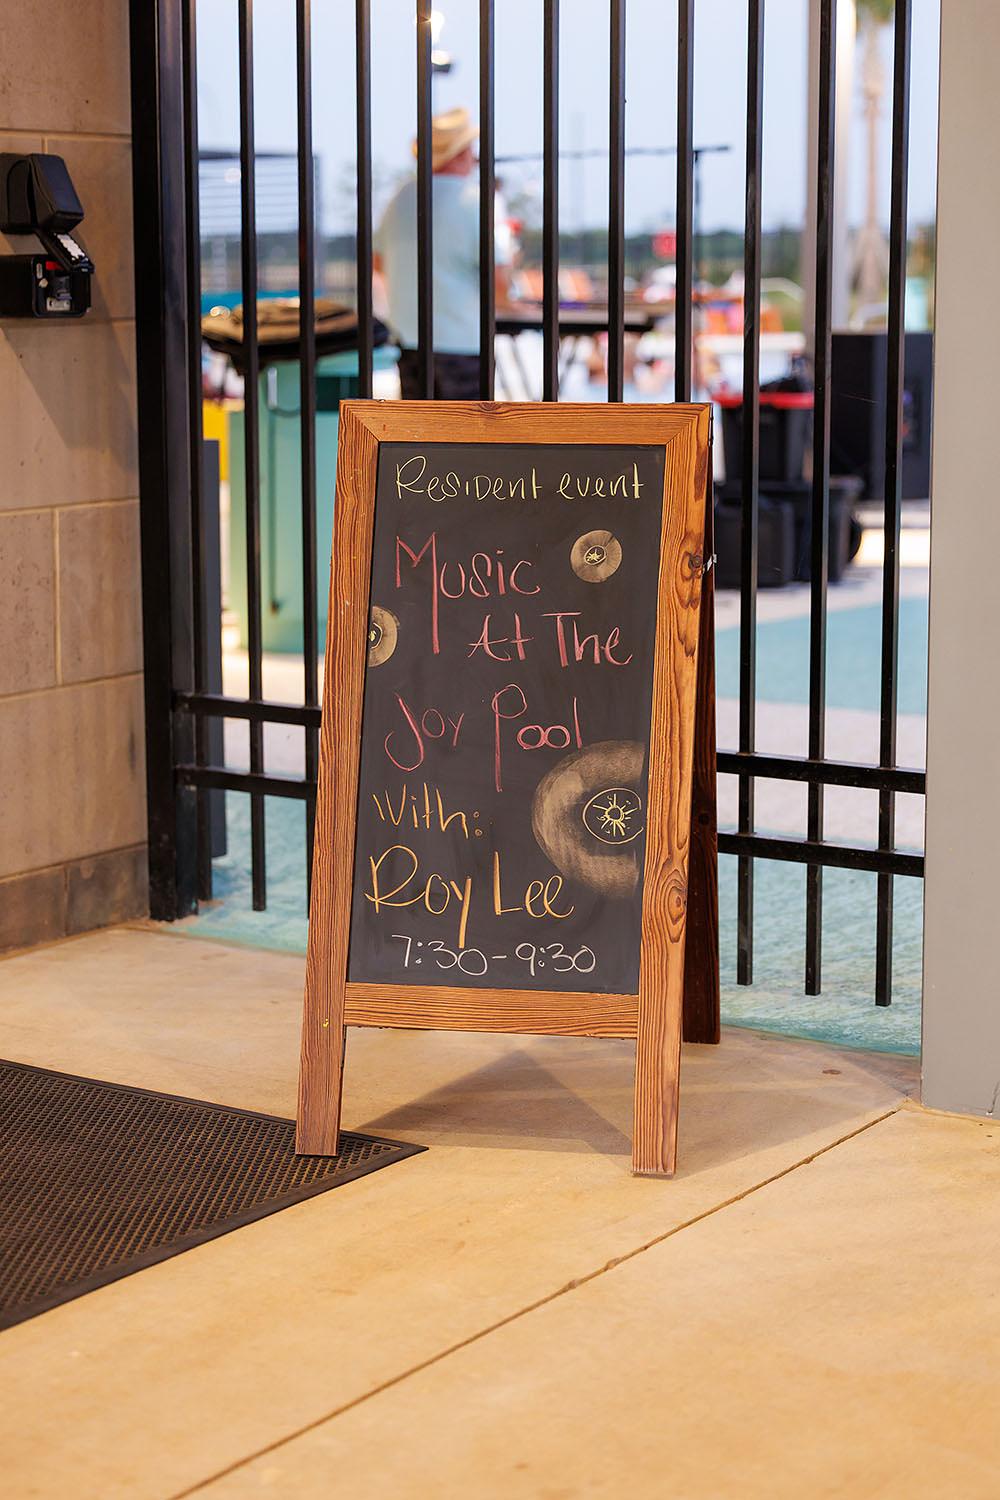 Resident event
Music
At The
Joy Pool
With:
Roy Lee
7:30-9:30